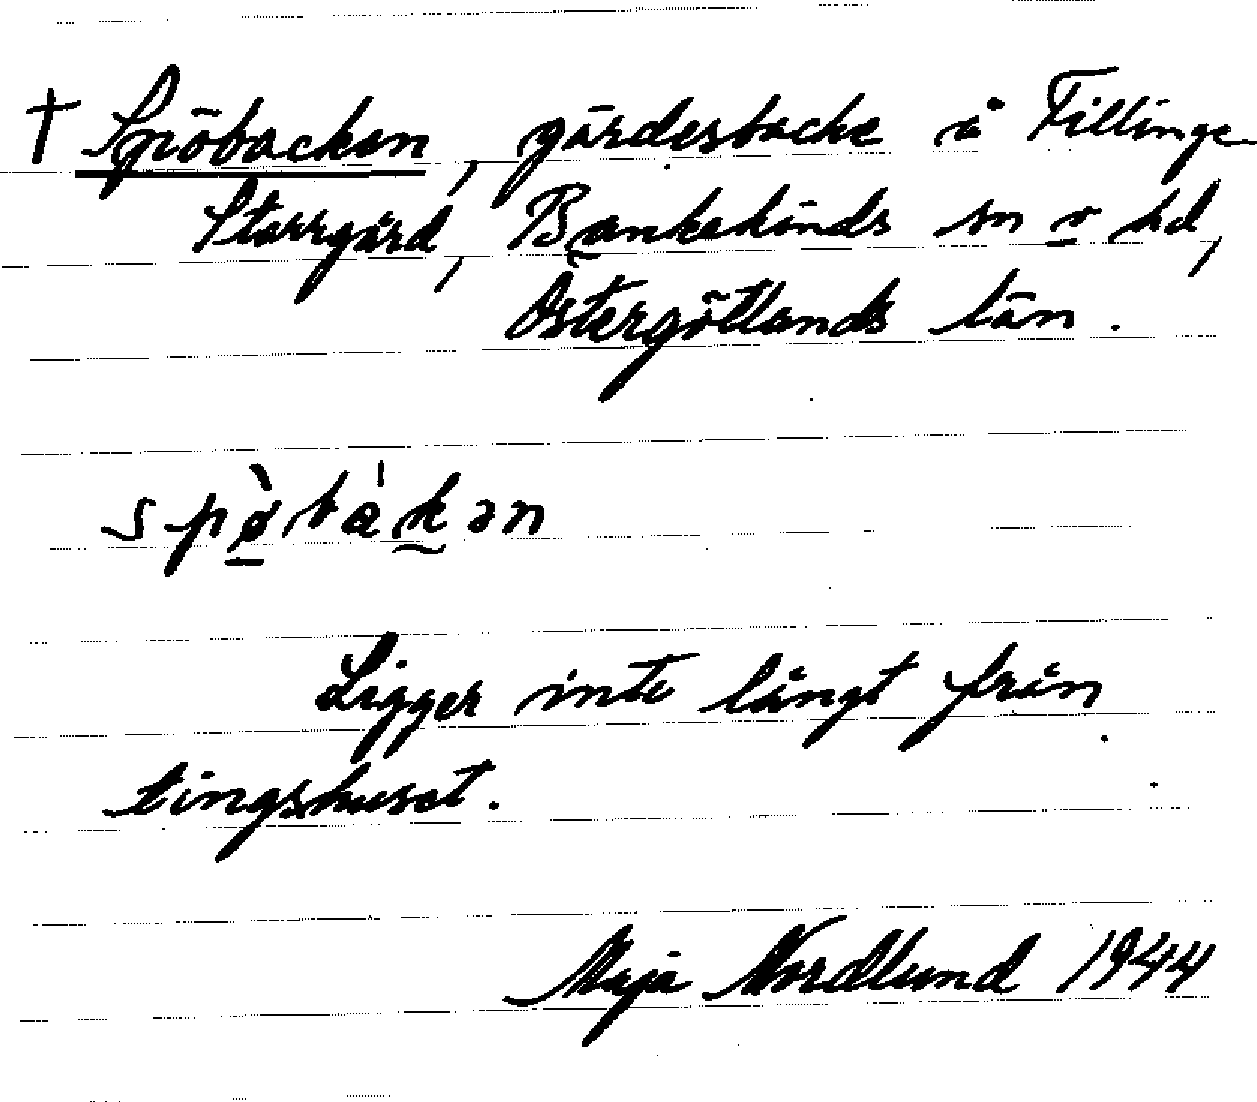 † Spöbacken, gärdesbacke å Fillinge
Storrgård, Bankekinds sn o hd,
Östergötlands län.
spø̀bàkən
Ligger inte långt från
tingshuset.
Maja Nordlund 1944